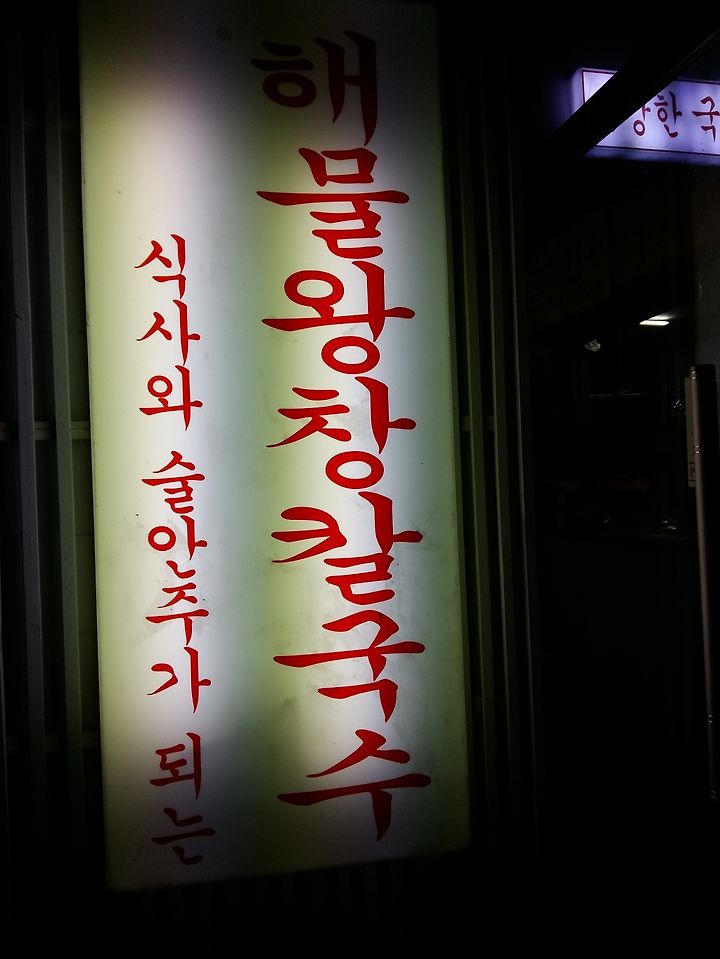 식사와 술안주가 되는
해물왕창칼국수